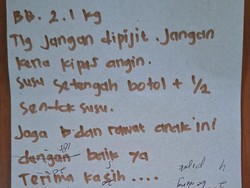 BB. 2.1 kg
Tlg Jangan dipijit. Jangan
kena kipas angin.
susu setengah botol + 1/2
sendok susu.
Jaga & dan rawat anak ini
dengan baik ya
Terima kasih ....